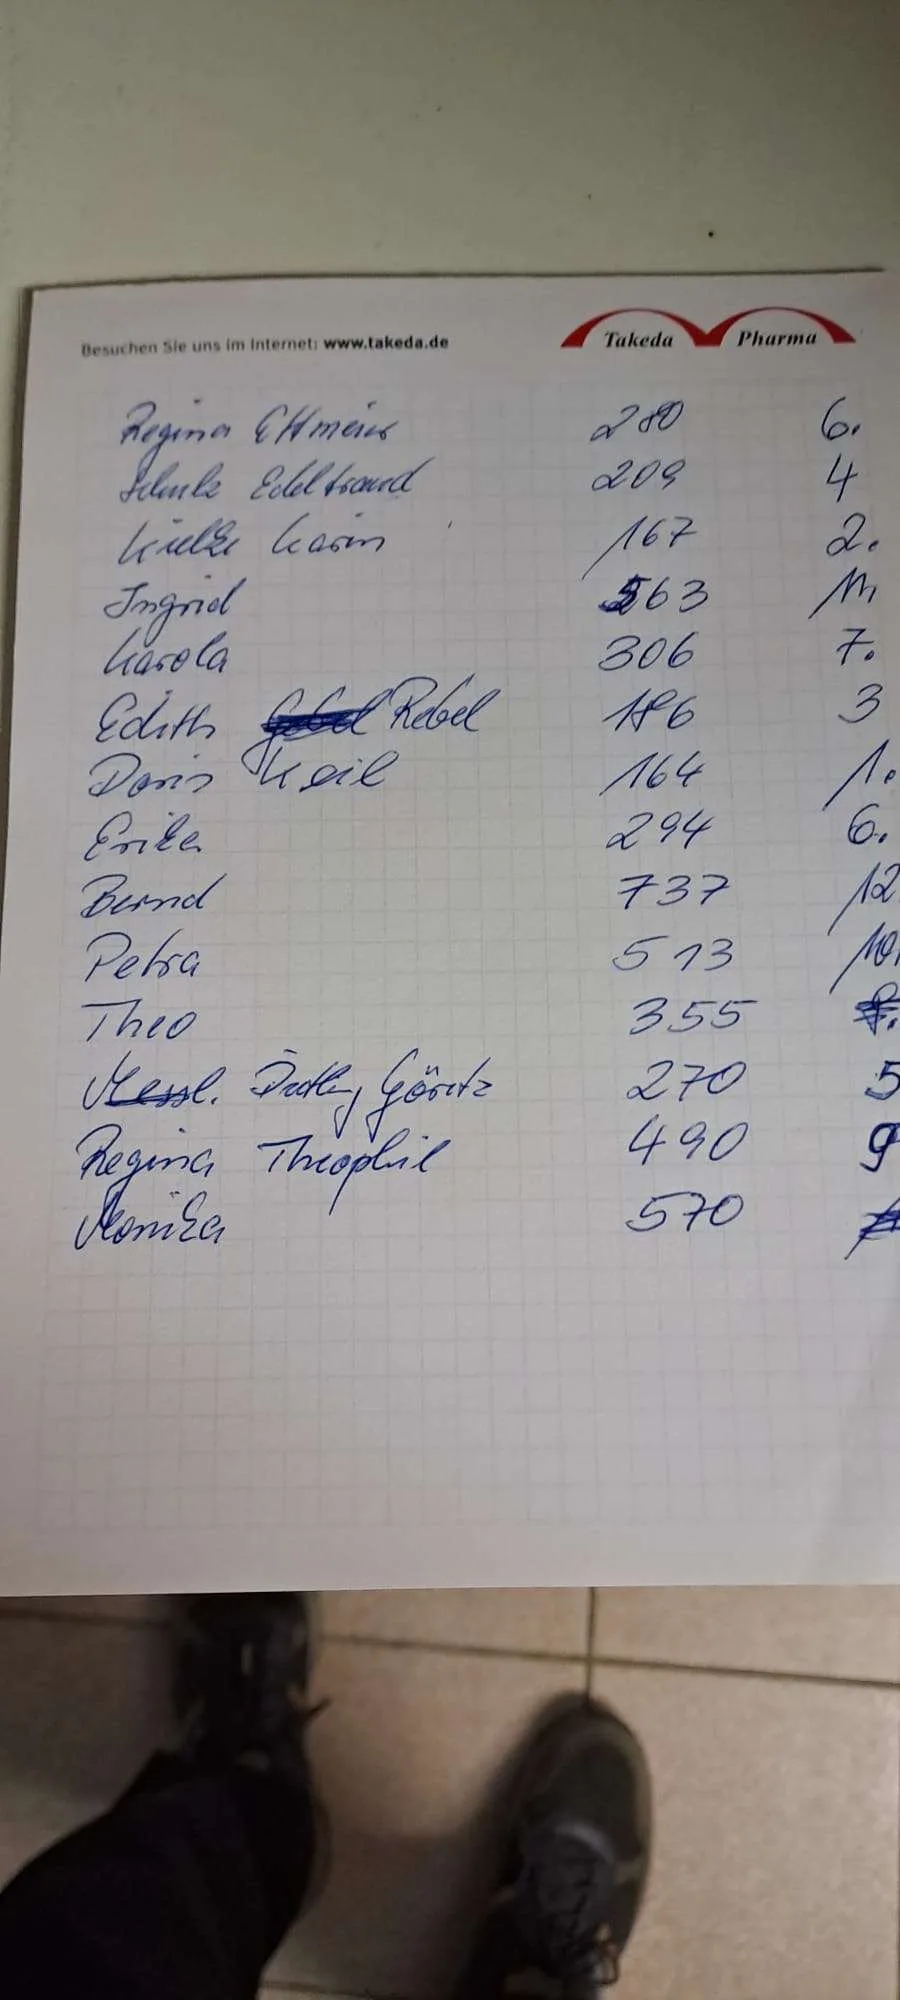 Besuchen Sie uns im Internet: www.takeda.de Takeda Pharma
Regina Ettmeier 280 6.
Schulz Edeltraud 209 4
Kielke Karin 167 2.
Ingrid 563 11,
Karola 306 7.
Edith Rebel 186 3
Doris Keil 164 1.
Erika 294 6.
Bernd 737 12
Petra 513 10,
Theo 355
Göritz 270 5
Regina Theophil 490 9
Monika 570